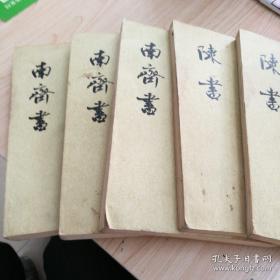 南齊書
南齊書
南齊書
陳書
陳書
孔夫子旧书网